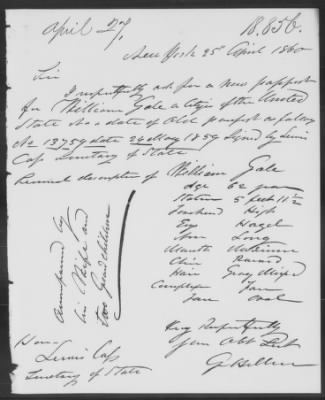 april 27,
18.856.
New York 25th April 1860
Sir
I respectfully ask for a new passport
for William Gale a Citizen of the United
State No & date of Old passport as follows
No 13759 date 24 May 1859 Signed by Lewis
Cass Secretary of State
Personal description of William Gale
Age 62 years
Stature 5 feet 11 1/2
Forehead High
Eyes Hazel
Nose Long
Mouth Medium
Chin Round
Hair Gray Mixed
Complexion Fair
Face Oval
accompanied by
his Wife and
two Grandchildren
Very Respectfully
your Obt Svt
Hon.
Lewis Cass
Secretary of State